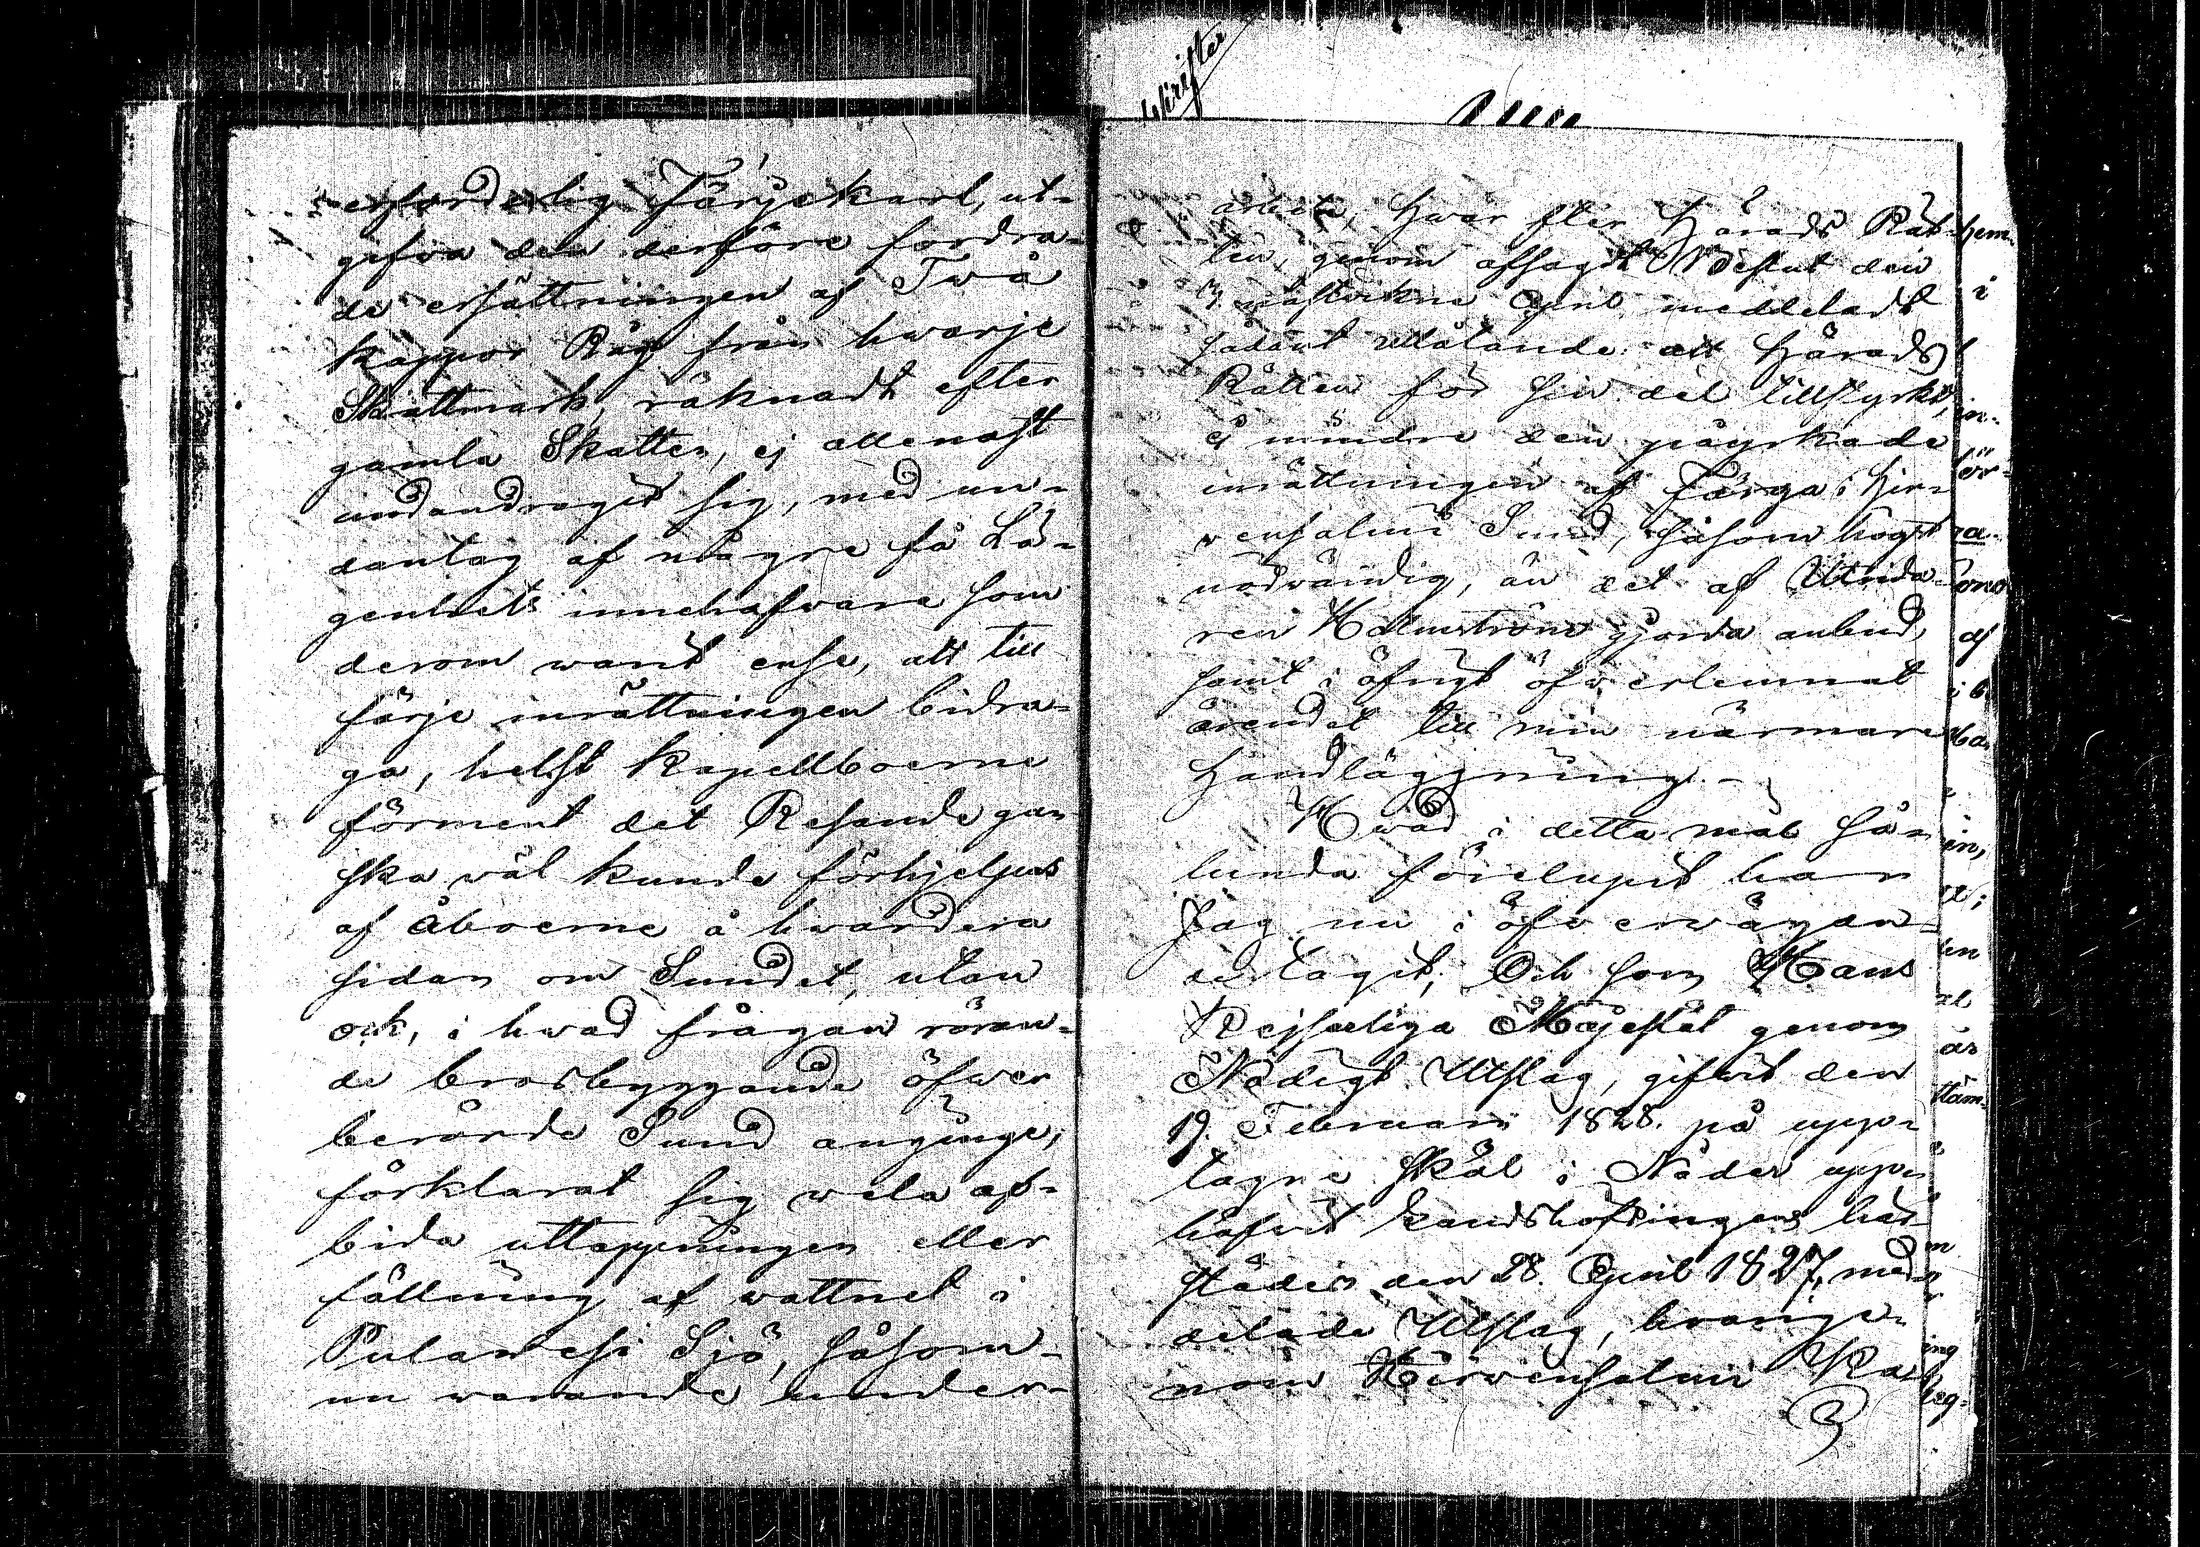 erforderlig Färjekarl, ut-
gifva den derföre fordra-
de ersättningen af Två
kappor Råg från hvarje
Skattmark, räknadt efter
gamla Skatten, ej allenast
undandragit sig, med un-
dantag af några få Lä-
genhets innehafvare som
derom warit ense, att till
färje inrättningen bidra-
ga, helst Kapellboerne
förment det Resande gan-
ska wäl kunde förhjelpas
af Åboerne å hwardera
sidan om Sundet, utan
ock, i hwad frågan röran-
de brobyggande öfwer
berörde Sund anginge,
förklarat sig wela af-
bida uttappningen eller
fällning af wattnet i
Pulawesi Sjö, såsom
nu warande under
arbete, hwar efter Härads Rät-
ten, genom afsagdt Beslut den
April meddeladt
sådant utlåtande att Härads
Rätten för sin del tillstyrkt,
ej mindre den påyrkade
inrättningen af Färga i Hir-
vensalmi Sund, såsom högst
nödvändig, än det af Utrida-
ren Holmström gjorda anbud,
samt i öfrigt öfwerlemnat
ärendet till min närmare
handläggning.-
Hwad i detta mål så-
lunda förelupit har
Jag nu i öfwerwägan-
de tagit, Och som Hans
Kejserliga Majestät genom
Nådigt Utslag, gifwit den
19. Februari 1828. på upp-
tagne skäl i Nåder upp-
häfwit Landshöfdingens här
städes den 28. April 1827, med-
delade Utslag, hvarige-
nom Hirvensalmi Ka-